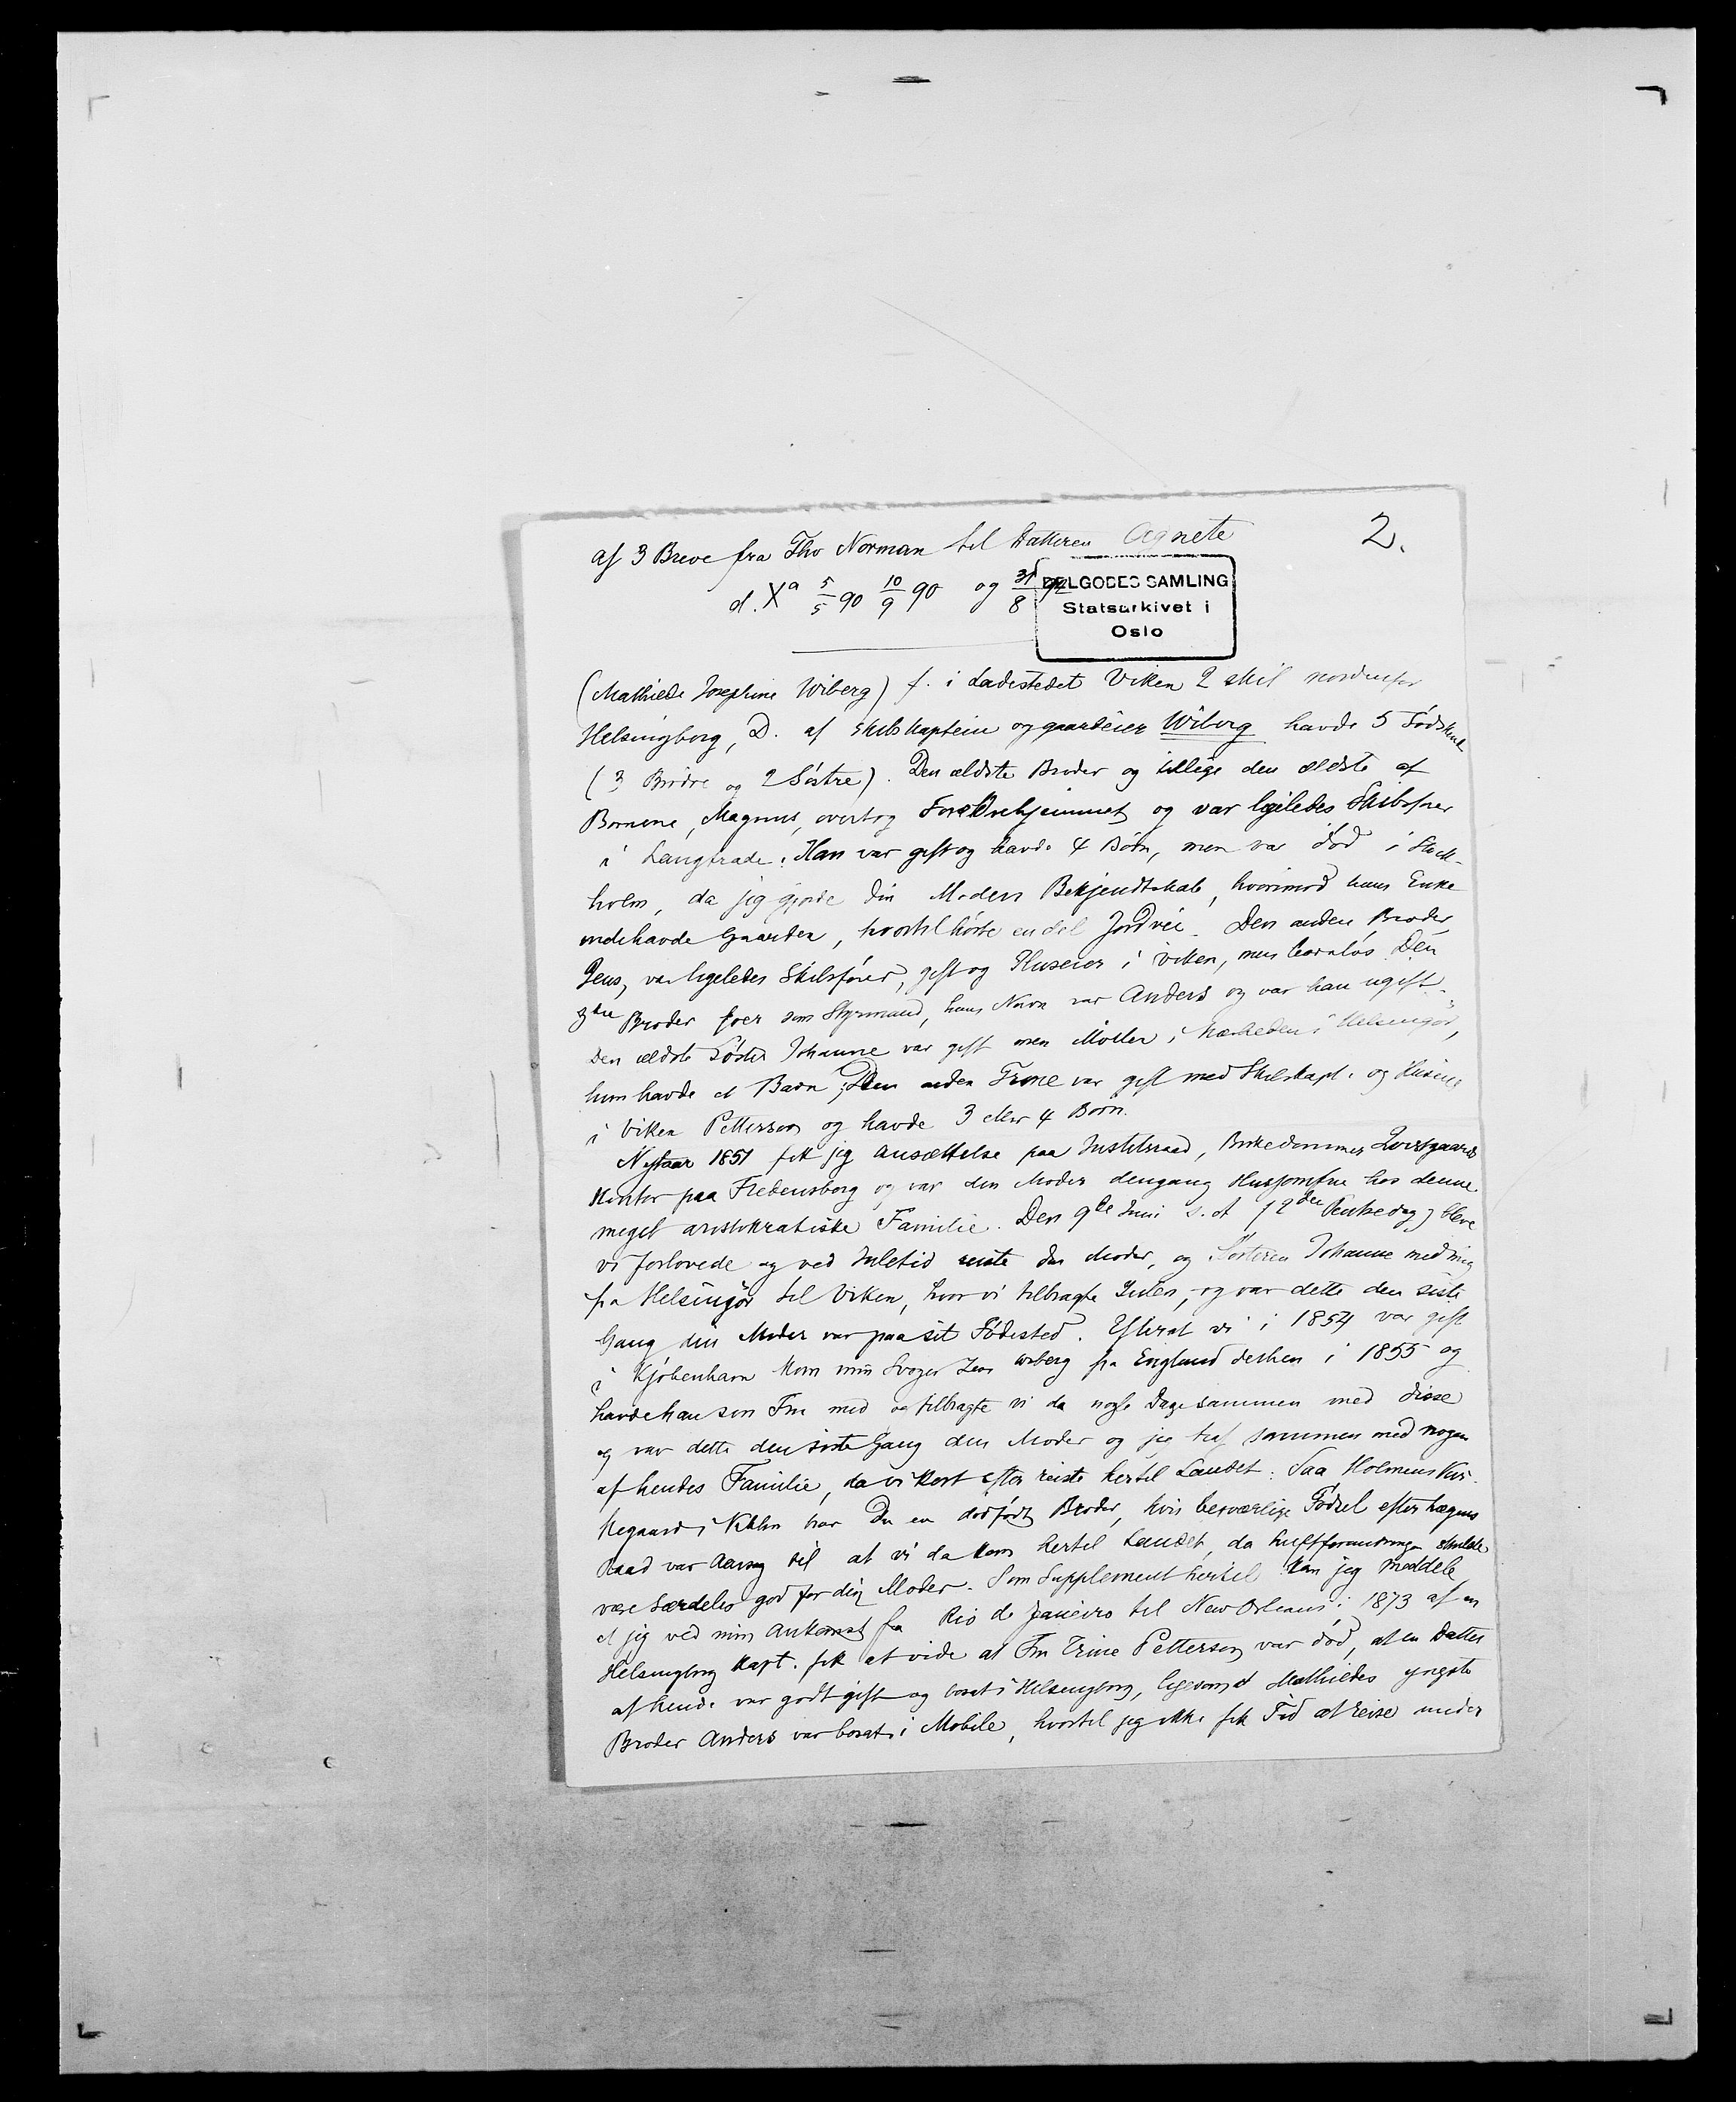 2.
af 3 Breve fra Thv Norman til Datteren Agnete
d. Xa 5/5 90 10/9 90 og 31/8 92
DELGOBES SAMLING
Statsarkivet i
Oslo
(Mathilde Josephine Wiberg) f. i Ladestedet Viken 2 Mil nordenfor
Helsingborg, D. af Skibskaptein og gaardeier Wiberg havde 5 Födskend
(3 Brödre og 2 Söstre). Den ældste Broder og tillige den ældste af
Börnene, Magnus, overtog Forældrehjemmet og var ligeledes Skibsförer
i Langfrade. Han var gift og havde 4 Börn, men var död i Stock-
holm, da jeg gjorde din Moders Bekjendtskab, hvorimod hans Enke
indehavde Gaarden, hvortil hörte en del Jordvei. Den anden Broder
Jens, var ligeledes Skibsförer, gift og Huseier i Viken, men barnlös. Den
3die Broder foer som Styrmand, hans Navn var Anders og var han ugift.
Den ældste Söster Johanne var gift med Möller i Nærheden i Helsingör,
hun havde et Barn; Den anden Trine var gift med Skibskapt. og Huseier
i Viken Petterson og havde 3 eller 4 Börn.
Nytaar 1851 fik jeg Ansættelse paa Justitsraad, Birkedommer
Kontor paa Fredensborg og var din Moder dengang Husjomfru hos denne
meget aristokratiske Familie. Den 9de Juni s. A (2den Pintsedag) bleve
vi forlovede og ved Juletid reiste din Moder, og Sösteren Johanne med mig
fra Helsingör til Viken, hvor vi tilbragte Julen, og var dette den siste
Gang din Moder var paa sit Födested. Efterat vi i 1854 var gift
i Kjöbenhavn kom min Svoger Jens Wiberg fra England derhen i 1855 og
havde han sin Fru med og tilbragte vi da nogle Dage sammen med disse
og var dette den siste Gang din Moder og jeg traf sammen med nogen
af hendes Familie, da vi kort efter reiste hertil Landet. Paa Holmens Kir-
kegaard i Kbhn har Du en dödfödt Broder, hvis besværlige Födsel efter Lægens
Raad var Aarsag til at vi da kom hertil Landet, da Luftforandringen skulde
være særdeles god for din Moder. Som Supplement hertil kan jeg meddele
at jeg ved min Ankomst fra Rio de Janeiro til New Orleans i 1873 af en
Helsingborg Kapt. fik at vide at Fru Trine Petterson var död, at en Datter
af hende var godt gift og bosat i Helsingborg, ligesom at Mathildes yngste
Broder Anders var bosat i Mobile, hvortil jeg ikke fik Tid at reise under